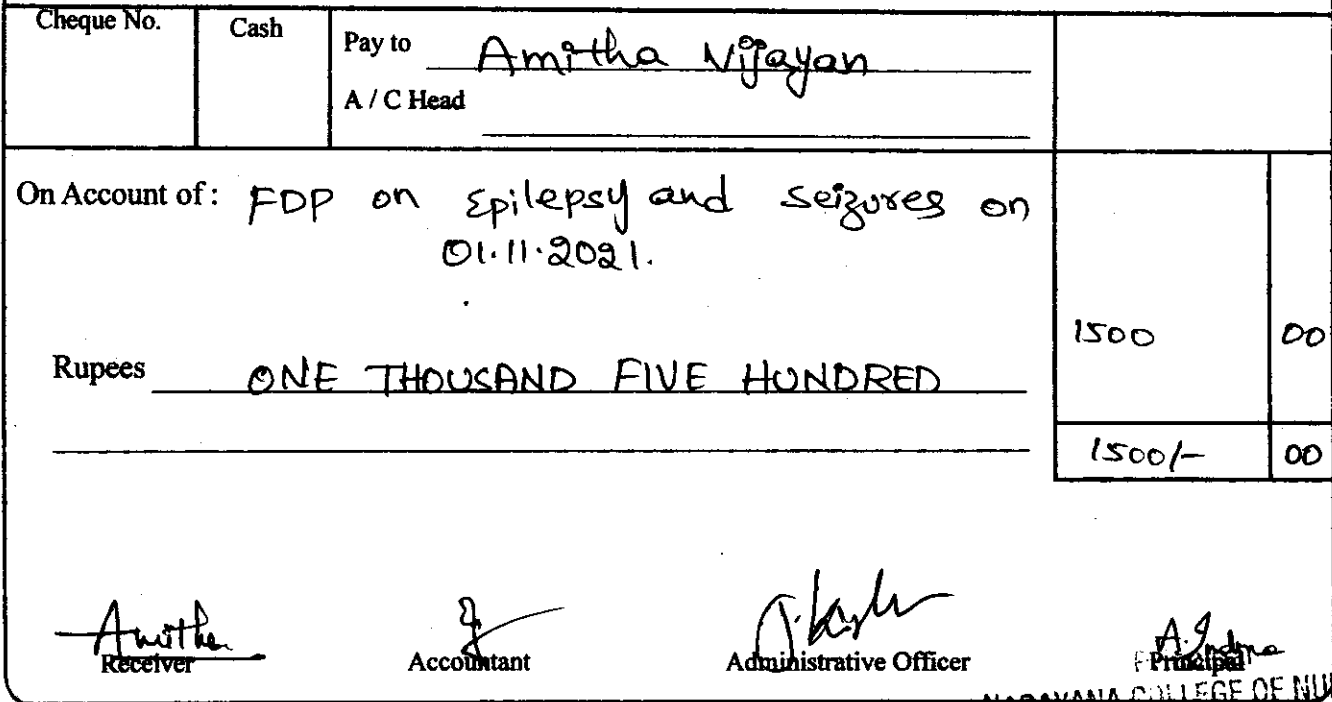 Cheque No.
Cash
Pay to Amitha Vijayan
A / C Head
On Account of : FDP on Epilepsy and Seizures on
01.11.2021.
1500 00
Rupees ONE THOUSAND FIVE HUNDRED
1500/- 00
Amitha
A. Indira
Receiver Accountant Administrative Officer Principal
COLLEGE OF